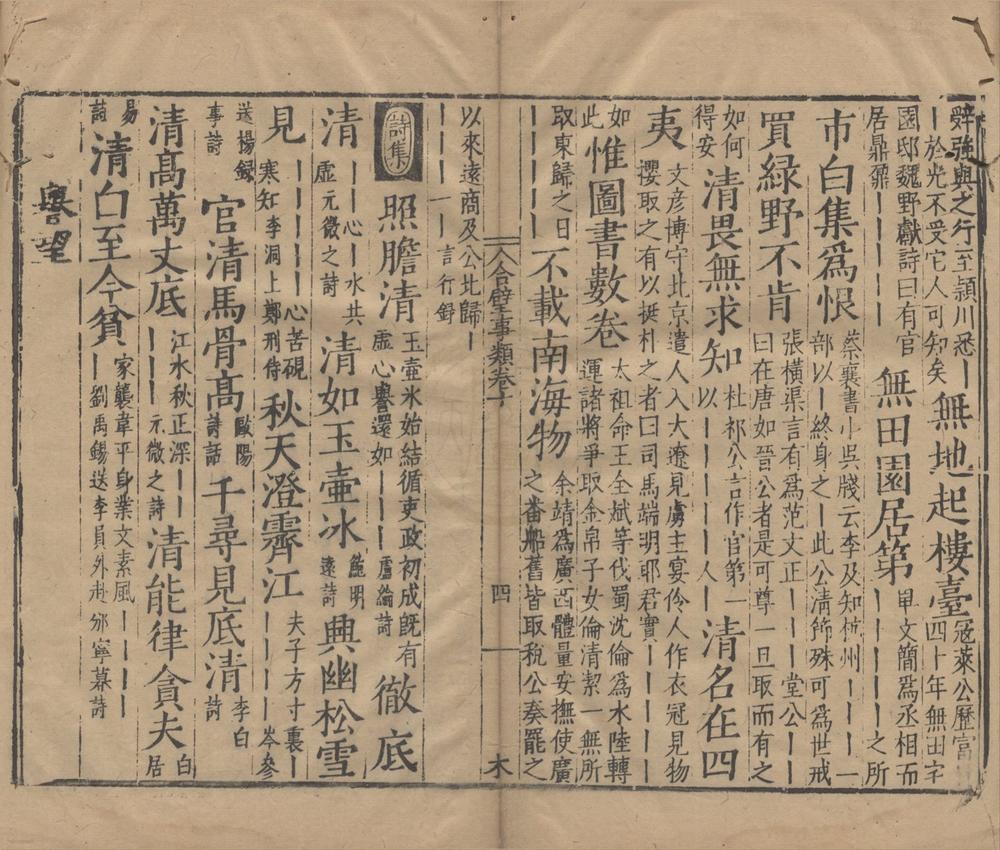 辭強與之行至潁川悉｜｜於光不受它人可知矣 無地起樓臺 冦萊公歷富四十年無田字
園邸魏野獻詩曰有官居鼎鼐｜｜｜｜｜ 無田園居第 畢文簡爲丞相而｜｜｜｜｜之所
市白集爲恨 蔡襄書小吳牋云李及知杭州｜｜｜一部以｜終身之｜此公清飾殊可爲世戒
買綠野不肯 張橫渠言有爲范文正｜｜堂公｜｜曰在唐如晉公者是可尊一旦取而有之
如何得安 清畏無求知 杜祁公言作官第一以｜｜｜｜人｜ 清名在四
夷 文彥博守北京遣人入大遼見虜主宴伶人作衣冠見物攫取之有以挺朴之者曰司馬端明耶君實｜｜｜｜
如此 惟圖書數卷 太祖命王全斌等伐蜀沈倫爲水陸轉運諸將爭取金帛子女倫清潔一無所
取東歸之日｜｜｜｜｜ 不載南海物 余靖爲廣西體量安撫使廣之畨舶舊皆取稅公奏罷之
以來遠商及公北歸｜｜｜｜｜ 言行錄
合璧事類卷十 四 木
詩集 照膽清 玉壷氷始結循吏政初成旣有虛心譽還如｜｜｜盧綸詩 徹底
清 ｜｜心｜水共虛元微之詩 清如玉壷冰 鮑明遠詩 興幽松雪
見 ｜｜｜｜｜心苦硯寒知李洞上鄭刑侍 秋天澄霽江 夫子方寸裏｜｜｜｜｜岑參
送揚錄事詩 官清馬骨髙 歐陽詩話 千尋見底清 李白詩
清髙萬丈底 江水秋正深｜｜｜｜｜元微之詩 清能律貪夫 白居
易詩 清白至今貧 家襲韋平身業文素風｜｜｜｜｜劉禹錫送李員外赴邠寧幕詩
譽望